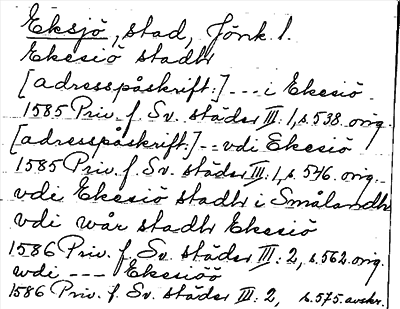 Eksjö, stad, Jönk. l.
Ekesiö stadh
[adresspåskrift:] --- i Ekesiö
1585 Priv. f. Sv. städer III: 1, s. 538. orig.
[adresspåskrift:] -- vdi Ekesiö
1585 Priv. f. Sv. städer III: 1, s. 546. orig.
vdi Ekesiö stadh i Smålandh
vdi wår stadh Ekesiö
1586 Priv. f. Sv. städer III: 2, s. 562. orig.
wdi --- Ekesiöö
1586 Priv. f. Sv. städer III: 2, s. 575. avskr.